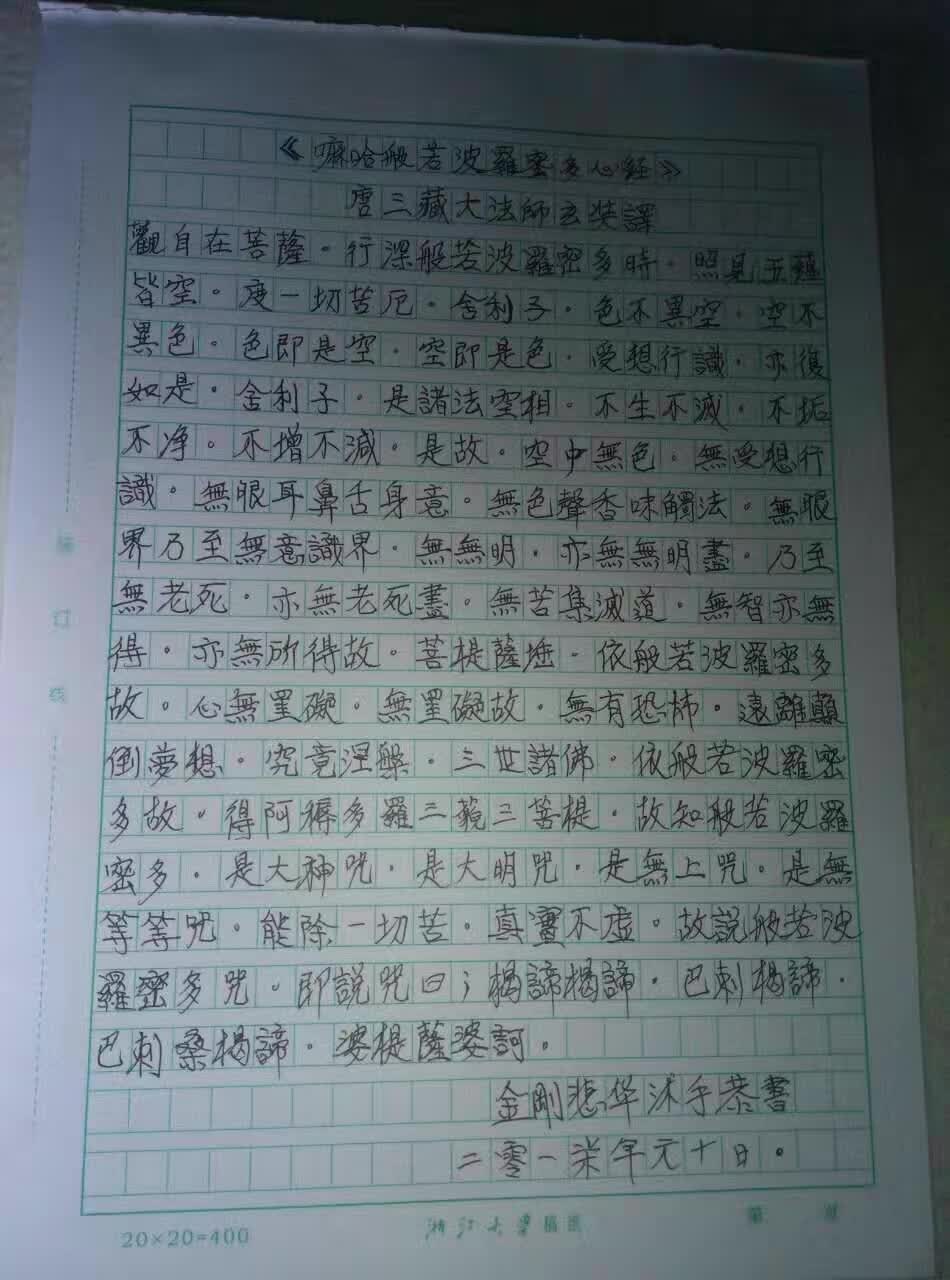 《嘛哈般若波羅密多心經》
唐三藏大法師玄奘譯
觀自在菩薩。行深般若波羅密多時。照見五蘊
皆空。度一切苦厄。舍利子。色不異空。空不
異色。色即是空。空即是色。受想行識。亦復
如是。舍利子。是諸法空相。不生不滅。不垢
不净。不增不減。是故。空中無色。無受想行
識。無眼耳鼻舌身意。無色聲香味觸法。無眼
界乃至無意識界。無無明。亦無無明盡。乃至
無老死。亦無老死盡。無苦集滅道。無智亦無
得。亦無所得故。菩提薩埵。依般若波羅密多
故。心無罣礙。無罣礙故。無有恐怖。遠離顛
倒夢想。究竟涅槃。三世諸佛。依般若波羅密
多故。得阿耨多羅三藐三菩提。故知般若波羅
密多。是大神咒。是大明咒。是無上咒。是無
等等咒。能除一切苦。真實不虛。故説般若波
羅密多咒。即説咒曰；揭諦揭諦。巴刺揭諦。
巴刺桑揭諦。婆提薩婆訶。
金剛悲华沭手恭書
二零一柒年元十日。
裝
订
线
20×20=400
浙江大學稿纸
第 页